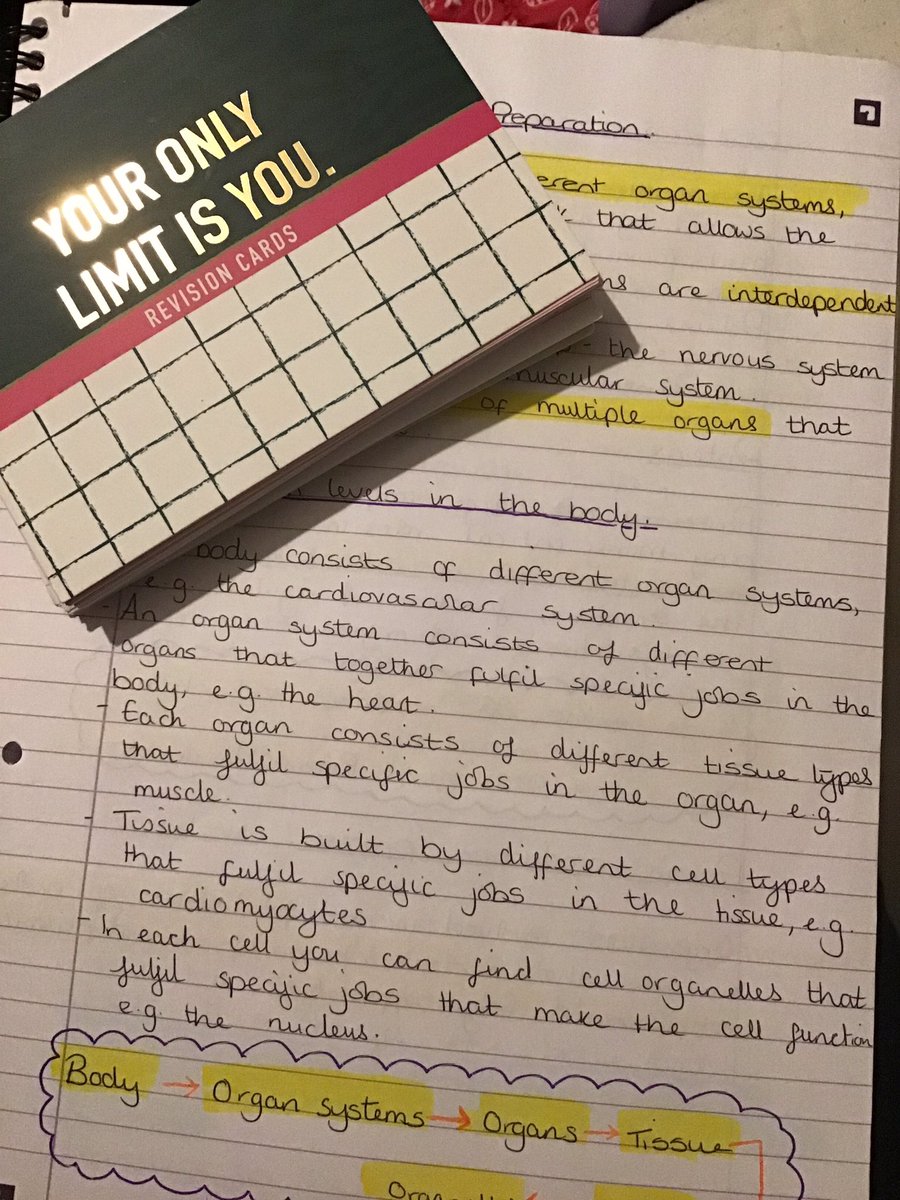 YOUR ONLY
LIMIT IS YOU.
REVISION CARDS
Preparation.
erent organ systems,
that allows the
ns are interdependent
- the nervous system
muscular system.
of multiple organs that
levels in the body.
body consists of different organ systems,
e.g. the cardiovascular system.
- An organ system consists of different
organs that together fulfil specific jobs in the
body, e.g. the heart.
- Each organ consists of different tissue types
that fulfil specific jobs in the organ, e.g.
muscle.
- Tissue is built by different cell types
that fulfil specific jobs in the tissue, e.g.
cardiomyocytes
- In each cell you can find cell organelles that
fulfil specific jobs that make the cell function
e.g. the nucleus.
Body → Organ systems → Organs → Tissue